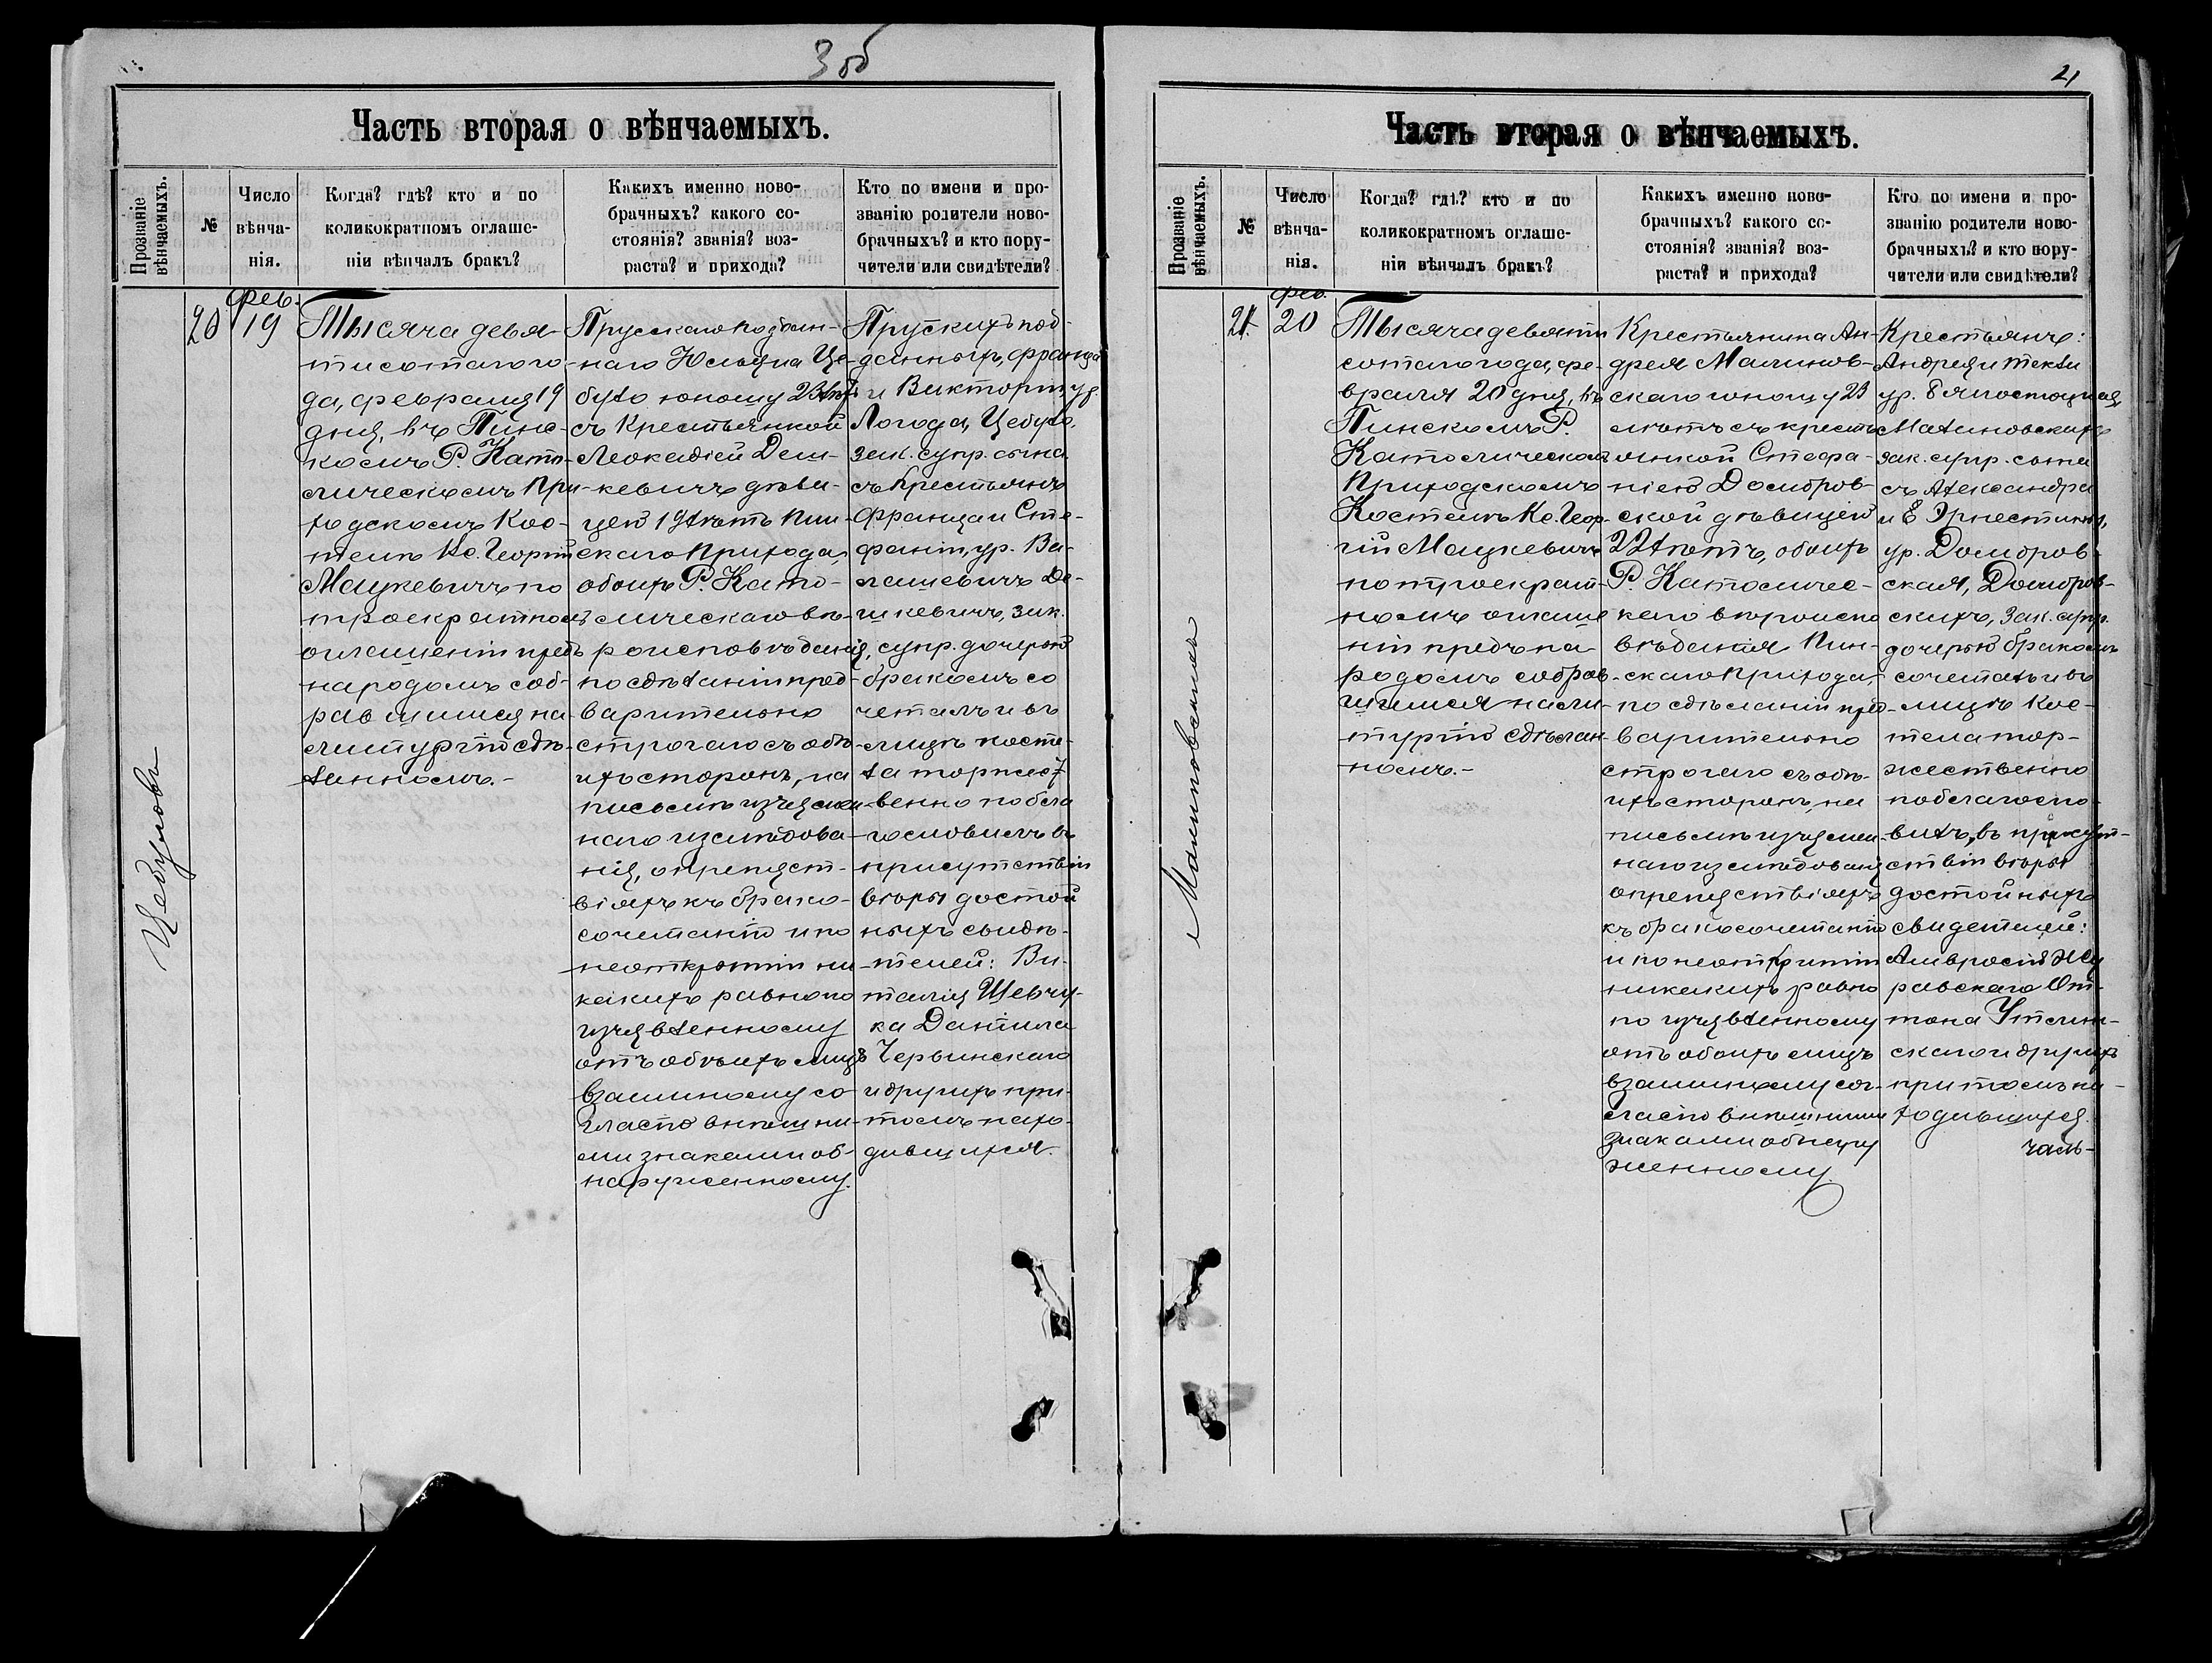 3 об
Часть вторая о вѣнчаемыхъ.
Прозваніе вѣнчаемыхъ.
№
Число вѣнча-нія.
Когда? гдѣ? кто и по
коликократномъ оглаше-
ніи вѣнчалъ бракъ?
Какихъ именно ново-
брачныхъ? какого со-
стоянія? званія? воз-
раста? и прихода?
Кто по имени и про-
званію родители ново-
брачныхъ? и кто пору-
чители или свидѣтели?
Цебуловъ
20
Фев.
19
Тысяча девя-
тисотаго го-
да, февраля 19
дня, въ Пинс-
комъ Р. Като-
лическомъ При-
ходскомъ Кос-
телѣ Кс. Георгій
Мацкевичъ по
троекратномъ
оглашеніи предъ
народомъ соб-
равшимся на
литургію сдѣ-
ланномъ.-
Прусскаго поддан-
наго Юліана Це-
було юношу 23 лѣтъ
съ крестьянкой
Леокадіей Деш-
кевичъ дѣви-
цею 19 лѣтъ Пин-
скаго Прихода,
обоихъ Р. Като-
лическаго вѣ-
роисповѣданія,
по сдѣланіи пред-
варительно
строгаго съ обѣ-
ихъ сторонъ, на
письмѣ изъяснен-
наго изслѣдова-
нія, о препятст-
віяхъ къ брако-
сочетанію и по
неоткрытіи ни-
какихъ равно по
изъявленному
отъ обоихъ лицъ
взаимному со-
гласію внѣшни-
ми знаками об-
наруженному.
Прускихъ под-
данныхъ, Франца
и Викторіи ур.
Логода, Цебуло,
зак. супр. сына
съ Крестьянъ
Франца и Сте-
фаніи, ур. Ва-
лашевичъ Де-
шкевичъ, зак.
супр. дочерью
бракомъ со
четалъ и въ
лицѣ косте-
ла торжест-
венно побла
гословилъ въ
присутствіи
вѣры достой
ныхъ свидѣ-
телей: Ви-
талія Шевчу-
ка Даніила
Червинскаго
и другихъ при
томъ нахо-
дившихся.
21
Часть вторая о вѣнчаемыхъ.
Прозваніе вѣнчаемыхъ.
№
Число вѣнча-нія.
Когда? гдѣ? кто и по
коликократномъ оглаше-
ніи вѣнчалъ бракъ?
Какихъ именно ново-
брачныхъ? какого со-
стоянія? званія? воз-
раста? и прихода?
Кто по имени и про-
званію родители ново-
брачныхъ? и кто пору-
чители или свидѣтели?
Малиновскихъ
21.
Фев.
20
Тысяча девяти
сотаго года, фе-
враля 20 дня, въ
Пинскомъ Р.
Католическомъ
Приходскомъ
Костелѣ Кс. Геор-
гій Мацкевичъ
по троекрат-
номъ оглаше
ніи предъ на
родомъ собрав-
шимся на ли-
тургію сдѣлан-
номъ.-
Крестьянина Ан-
дрея Малинов-
скаго юношу 23
лѣтъ съ кресть
янкой Стефа-
ніею Домбров-
ской дѣвицею
22 лѣтъ, обоихъ
Р. Католичес-
каго вѣроиспо
вѣданія Пин-
скаго Прихода,
по сдѣланіи пред-
варительно
строгаго съ обѣ-
ихъ сторонъ, на
письмѣ изъяснен-
наго изслѣдованія
о препятствіяхъ
къ бракосочетанію
и по неоткрытіи
никакихъ равно
по изъявленному
отъ обоихъ лицъ
взаимному сог-
ласію внѣшними
знаками обнару
женному.
Крестьянъ:
Андрея и Теклі
ур.
Малиновскихъ
зак. супр. сына
съ Александра
и Эрнестины,
ур. Домбров-
ская, Домбров-
скихъ, зак. супр.
дочерью бракомъ
сочеталъ и въ
лицѣ Кос-
тела тор-
жественно
поблагосло-
вилъ, въ присут-
ствіи вѣры
достойныхъ
свидетелей:
Амвросія Жу
равскаго Ан-
тона
скаго и другихъ
при томъ на-
ходившихся.
чаль-